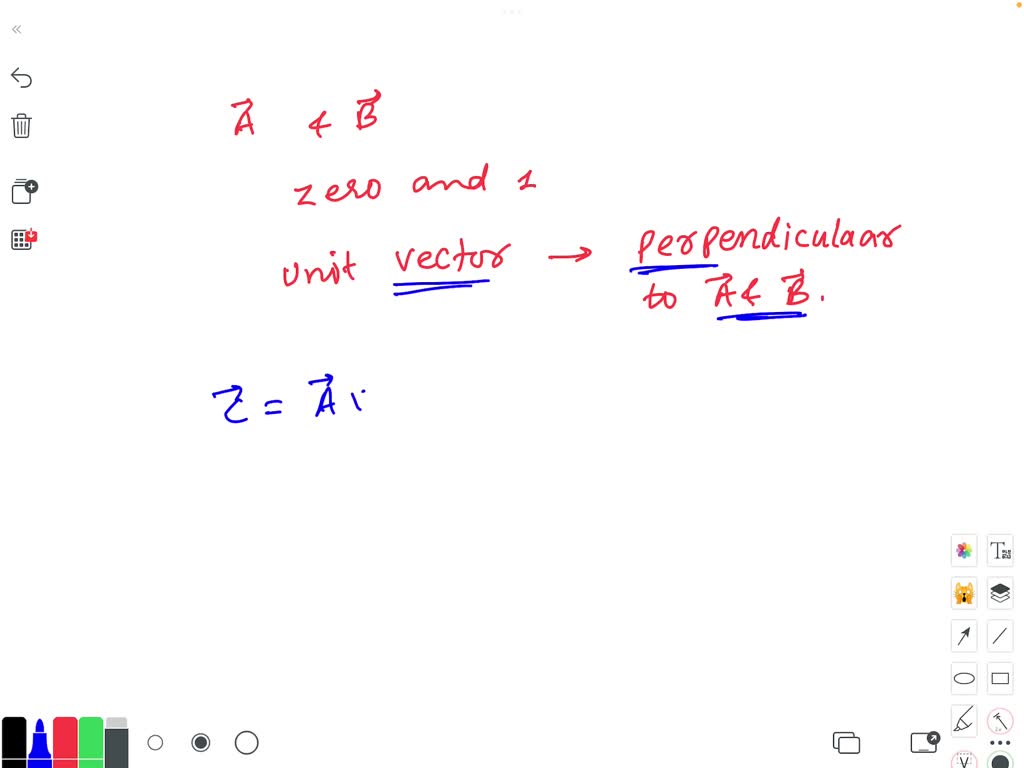 A⃗ & B⃗
zero and 1
unit vector → perpendiculaar
to A⃗ & B⃗.
C⃗ = A⃗